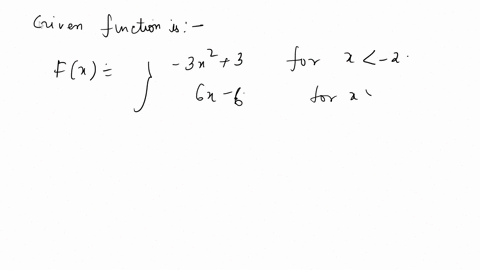 Given function is:-
F(x) = } -3x²+3 for x < -2.
6x-6 for x